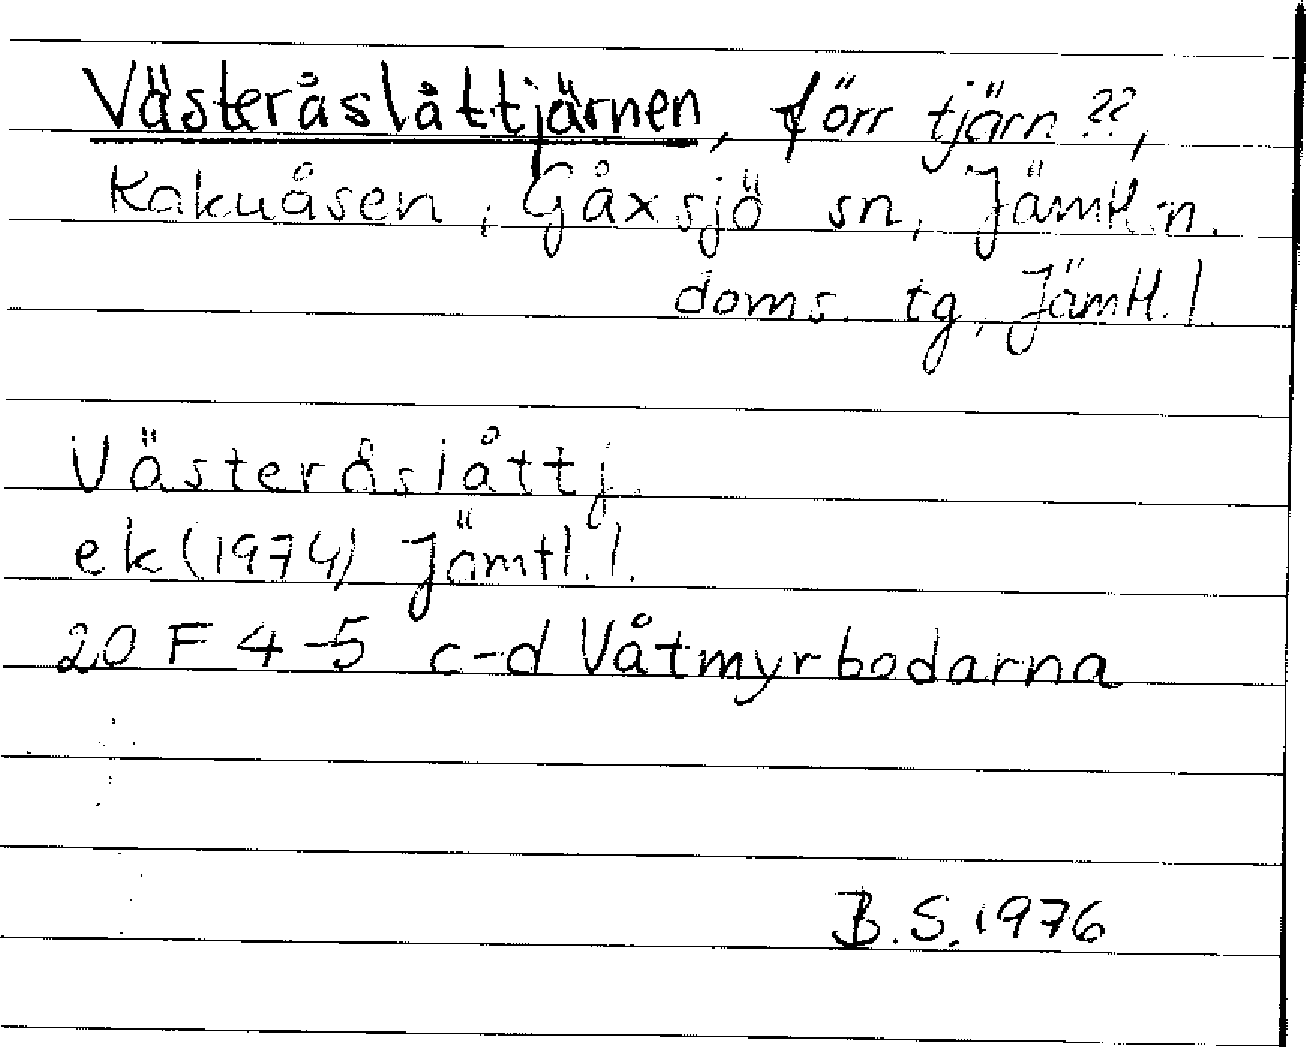 Västeråslåttjärnen, förr tjärn??,
Kakuåsen, Gåxsjö sn, Jämtl:n.
doms. tg, Jämtl. l.
Västeråslåttj.
ek (1974) Jämtl. l.
20 F 4-5 c-d Våtmyrbodarna
B. S. 1976